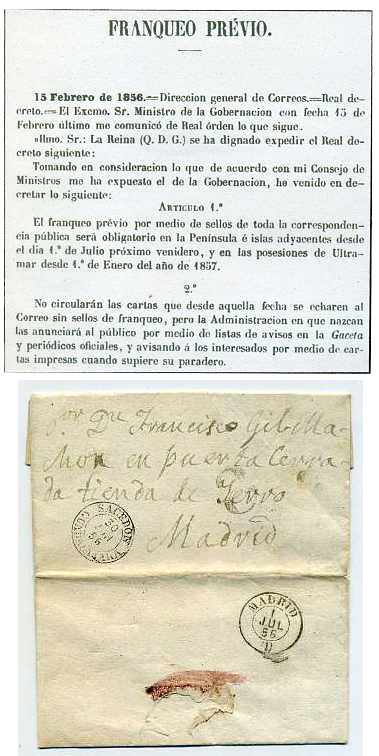 FRANQUEO PRÉVIO.
15 Febrero de 1856.=Direccion general de Correos.=Real de-
creto.=El Excmo. Sr. Ministro de la Gobernacion con fecha 15 de
Febrero último me comunicó de Real órden lo que sigue.
»Ilmo. Sr.: La Reina (Q. D. G.) se ha dignado expedir el Real de-
creto siguiente:
Tomando en consideracion lo que de acuerdo con mi Consejo de
Ministros me ha expuesto el de la Gobernacion, he venido en de-
cretar lo siguiente:
ARTICULO 1.°
El franqueo prévio por medio de sellos de toda la corresponden-
cia pública será obligatorio en la Península é islas adyacentes desde
el dia 1.° de Julio próximo venidero, y en las posesiones de Ultra-
mar desde 1.° de Enero del año de 1857.
2.°
No circularán las cartas que desde aquella fecha se echaren al
Correo sin sellos de franqueo, pero la Administracion en que nazcan
las anunciará al público por medio de listas de avisos en la Gaceta
y periódicos oficiales, y avisando á los interesados por medio de car-
tas impresas cuando supiere su paradero.
Dn Francisco Gil Ma-
chon en puerta Cerra-
da tienda de Yerro
Madrid
SACEDON
30
56
GUADALAJARA
MADRID
1
JUL
56